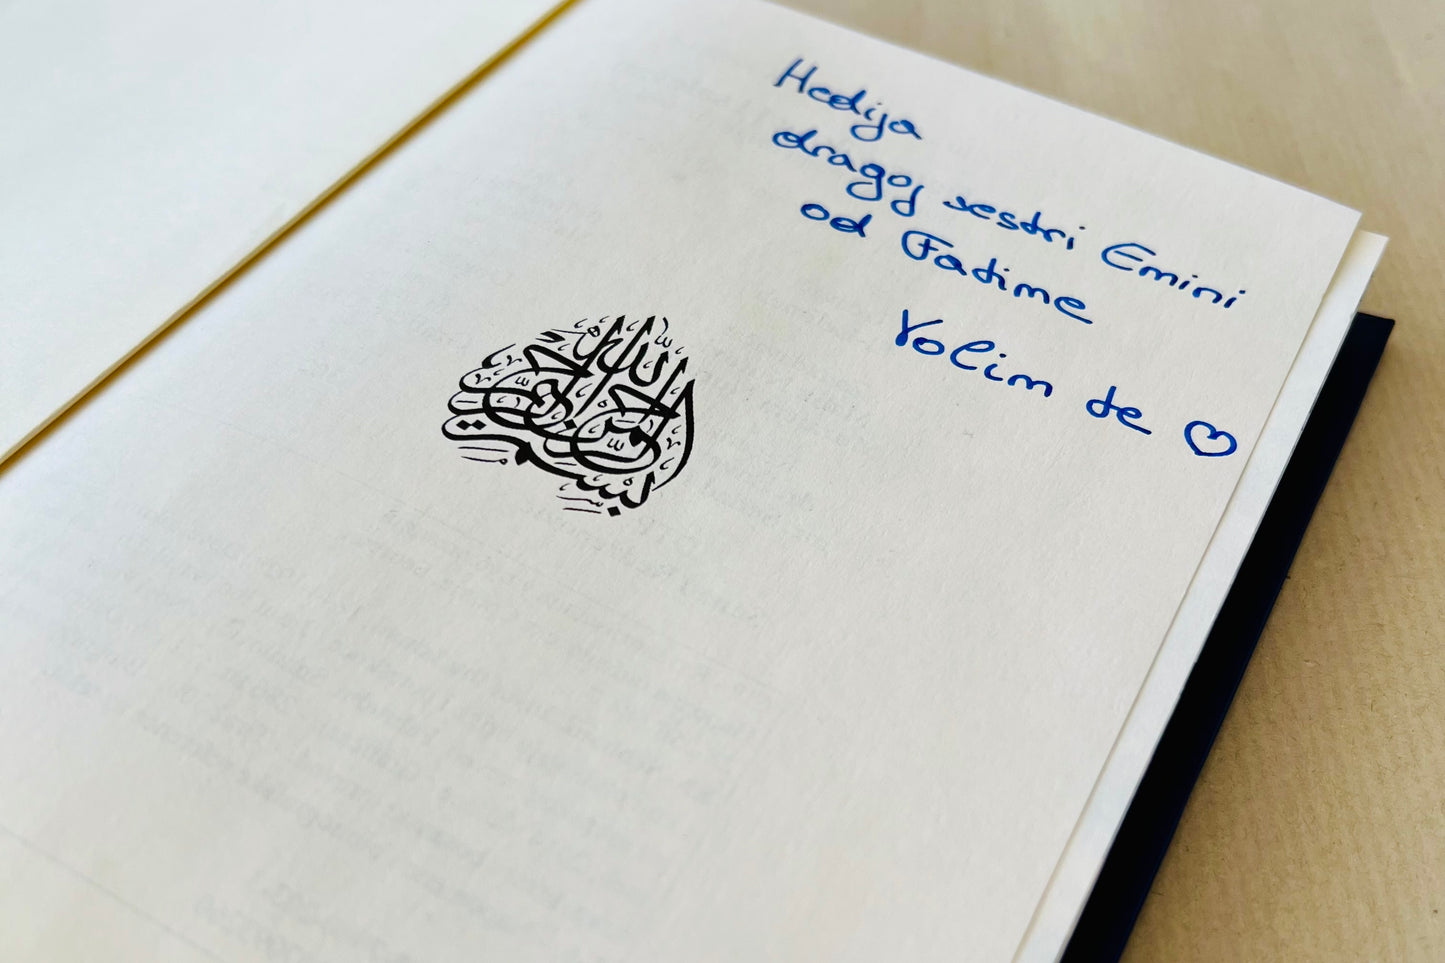 Hedija
dragoj sestri Emini
od Fatime
Volim te ♡
بسم الله الرحمن الرحيم